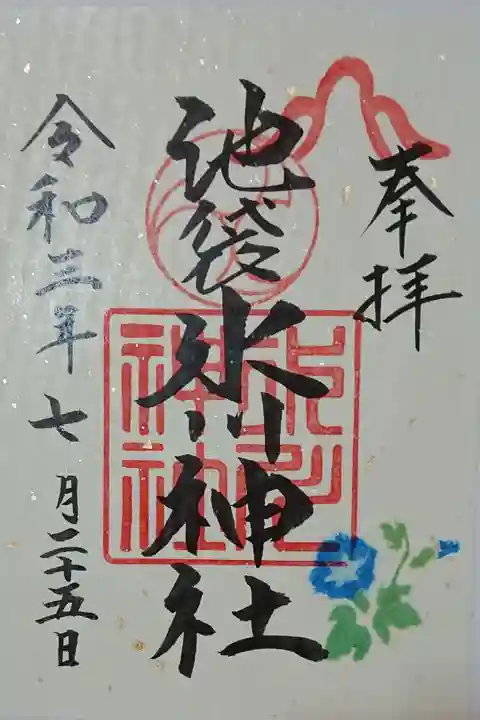 奉拝
池袋氷川神社
氷川神社
令和三年七月二十五日